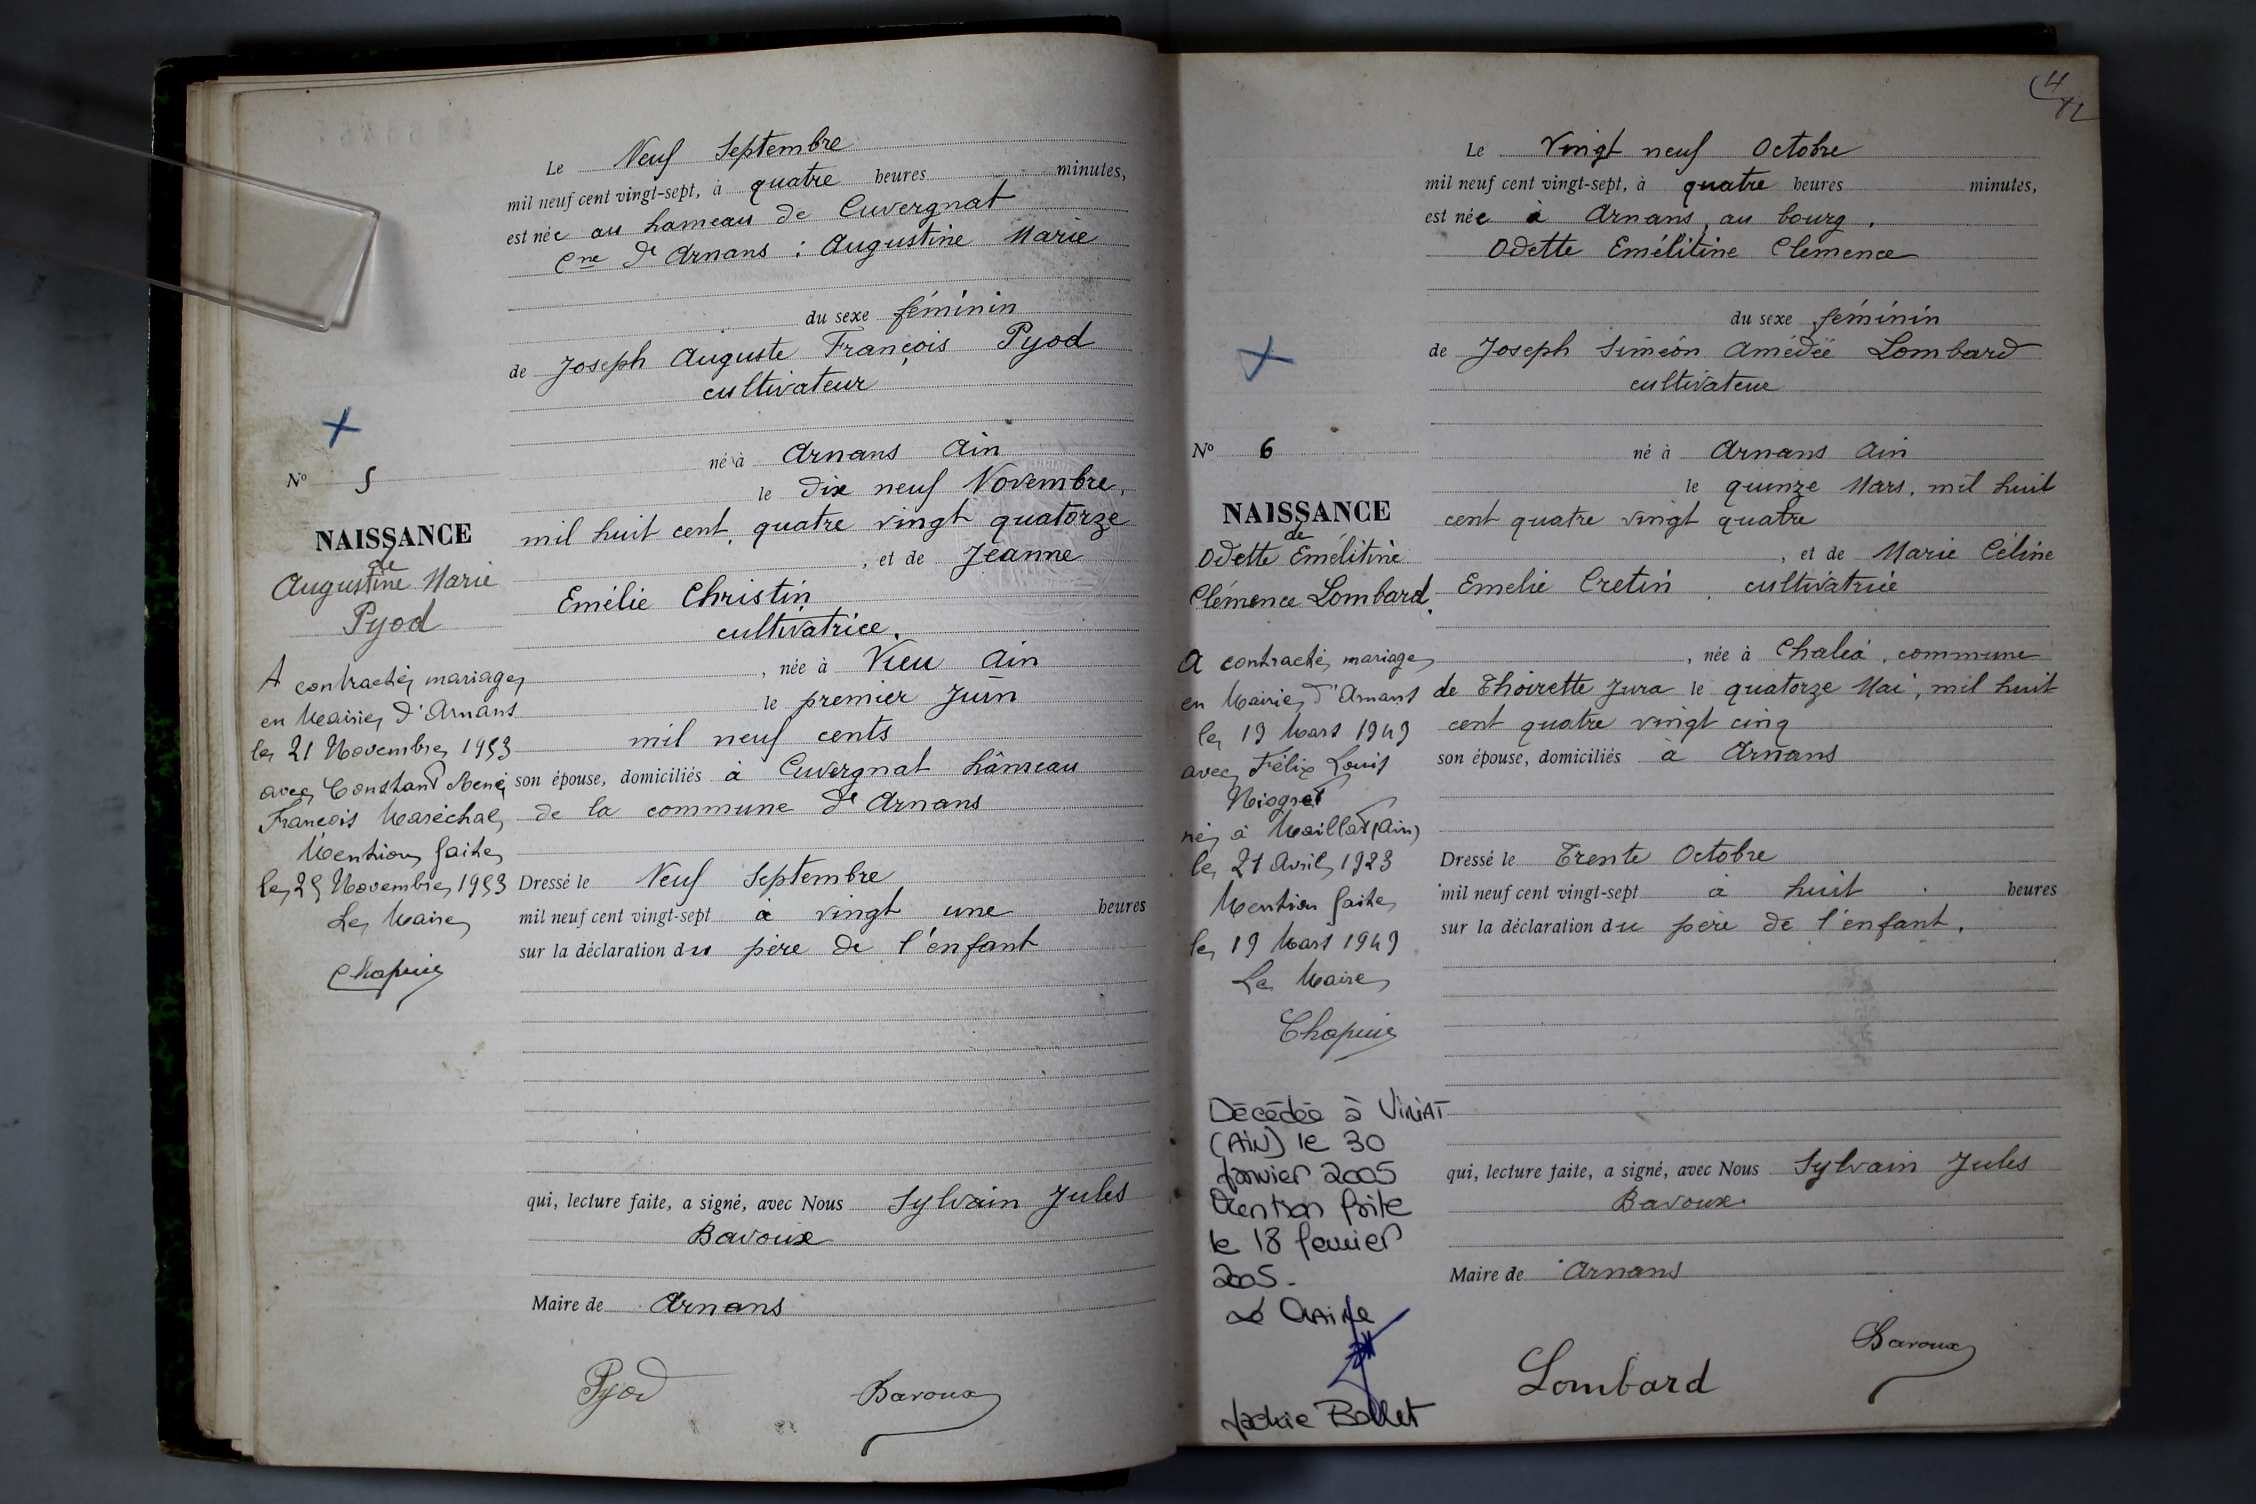 Le Neuf Septembre
mil neuf cent vingt-sept, à quatre heures minutes,
est née au hameau de Cuvergnat
Cne d'Arnans : Augustine Marie
du sexe féminin
de Joseph Auguste François Pyod
cultivateur
né à Arnans Ain
le dix neuf Novembre,
mil huit cent quatre vingt quatorze
, et de Jeanne
Emélie Christin
cultivatrice.
, née à Vieu Ain
le premier Juin
mil neuf cents
son épouse, domiciliés à Cuvergnat hâmeau
de la commune d'Arnans
Dressé le Neuf Septembre
mil neuf cent vingt-sept à vingt une heures
sur la déclaration du père de l'enfant
qui, lecture faite, a signé, avec Nous Sylvain Jules
Bavoux
Maire de Arnans
Pyod Bavoux
No 5
NAISSANCE
de
Augustine Marie
Pyod
A contracté mariage
en Mairie d'Arnans
le 21 Novembre 1953
avec Constant René
François Maréchal
Mention faite
le 25 Novembre 1953
Le Maire
Chapuis
4
Le Vingt neuf Octobre
mil neuf cent vingt-sept, à quatre heures minutes,
est née à Arnans, au bourg.
Odette Emélitine Clemence
du sexe féminin
de Joseph Siméon Amédéé Lombard
cultivateur
né à Arnans Ain
le quinze Mars, mil huit
cent quatre vingt quatre
, et de Marie Céline
Emelie Cretin, cultivatrice
, née à Chaléa, commune
de Thoirette Jura le quatorze Mai, mil huit
cent quatre vingt cinq
son épouse, domiciliés à Arnans
Dressé le Trente Octobre
mil neuf cent vingt-sept à huit heures
sur la déclaration du père de l'enfant.
qui, lecture faite, a signé, avec Nous Sylvain Jules
Bavoux
Maire de Arnans
Lombard Bavoux
No 6
NAISSANCE
de
Odette Emélitine
Clémence Lombard.
A contracté mariage
en Mairie d'Arnans
le 19 Mars 1949
avec Félix Louis
Niogret
né à Maillat (Ain)
le 21 Avril 1923
Mention faite
le 19 Mars 1949
Le Maire
Chapuis
Décédée à VIRIAT
(AIN) le 30
janvier 2005
Mention faite
le 18 fevrier
2005.
Le Maire
Jackie Bollet